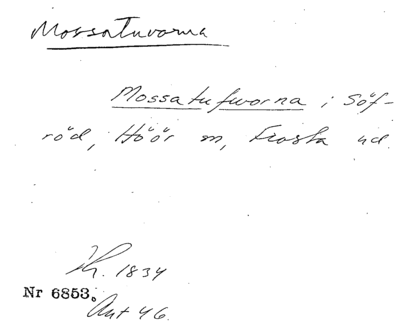 Mossatuvorna
Mossatufworna i Söf-
röd, Höör sn, Frosta hd.
Lh. 1834
Nr 6853.
Akt 46.